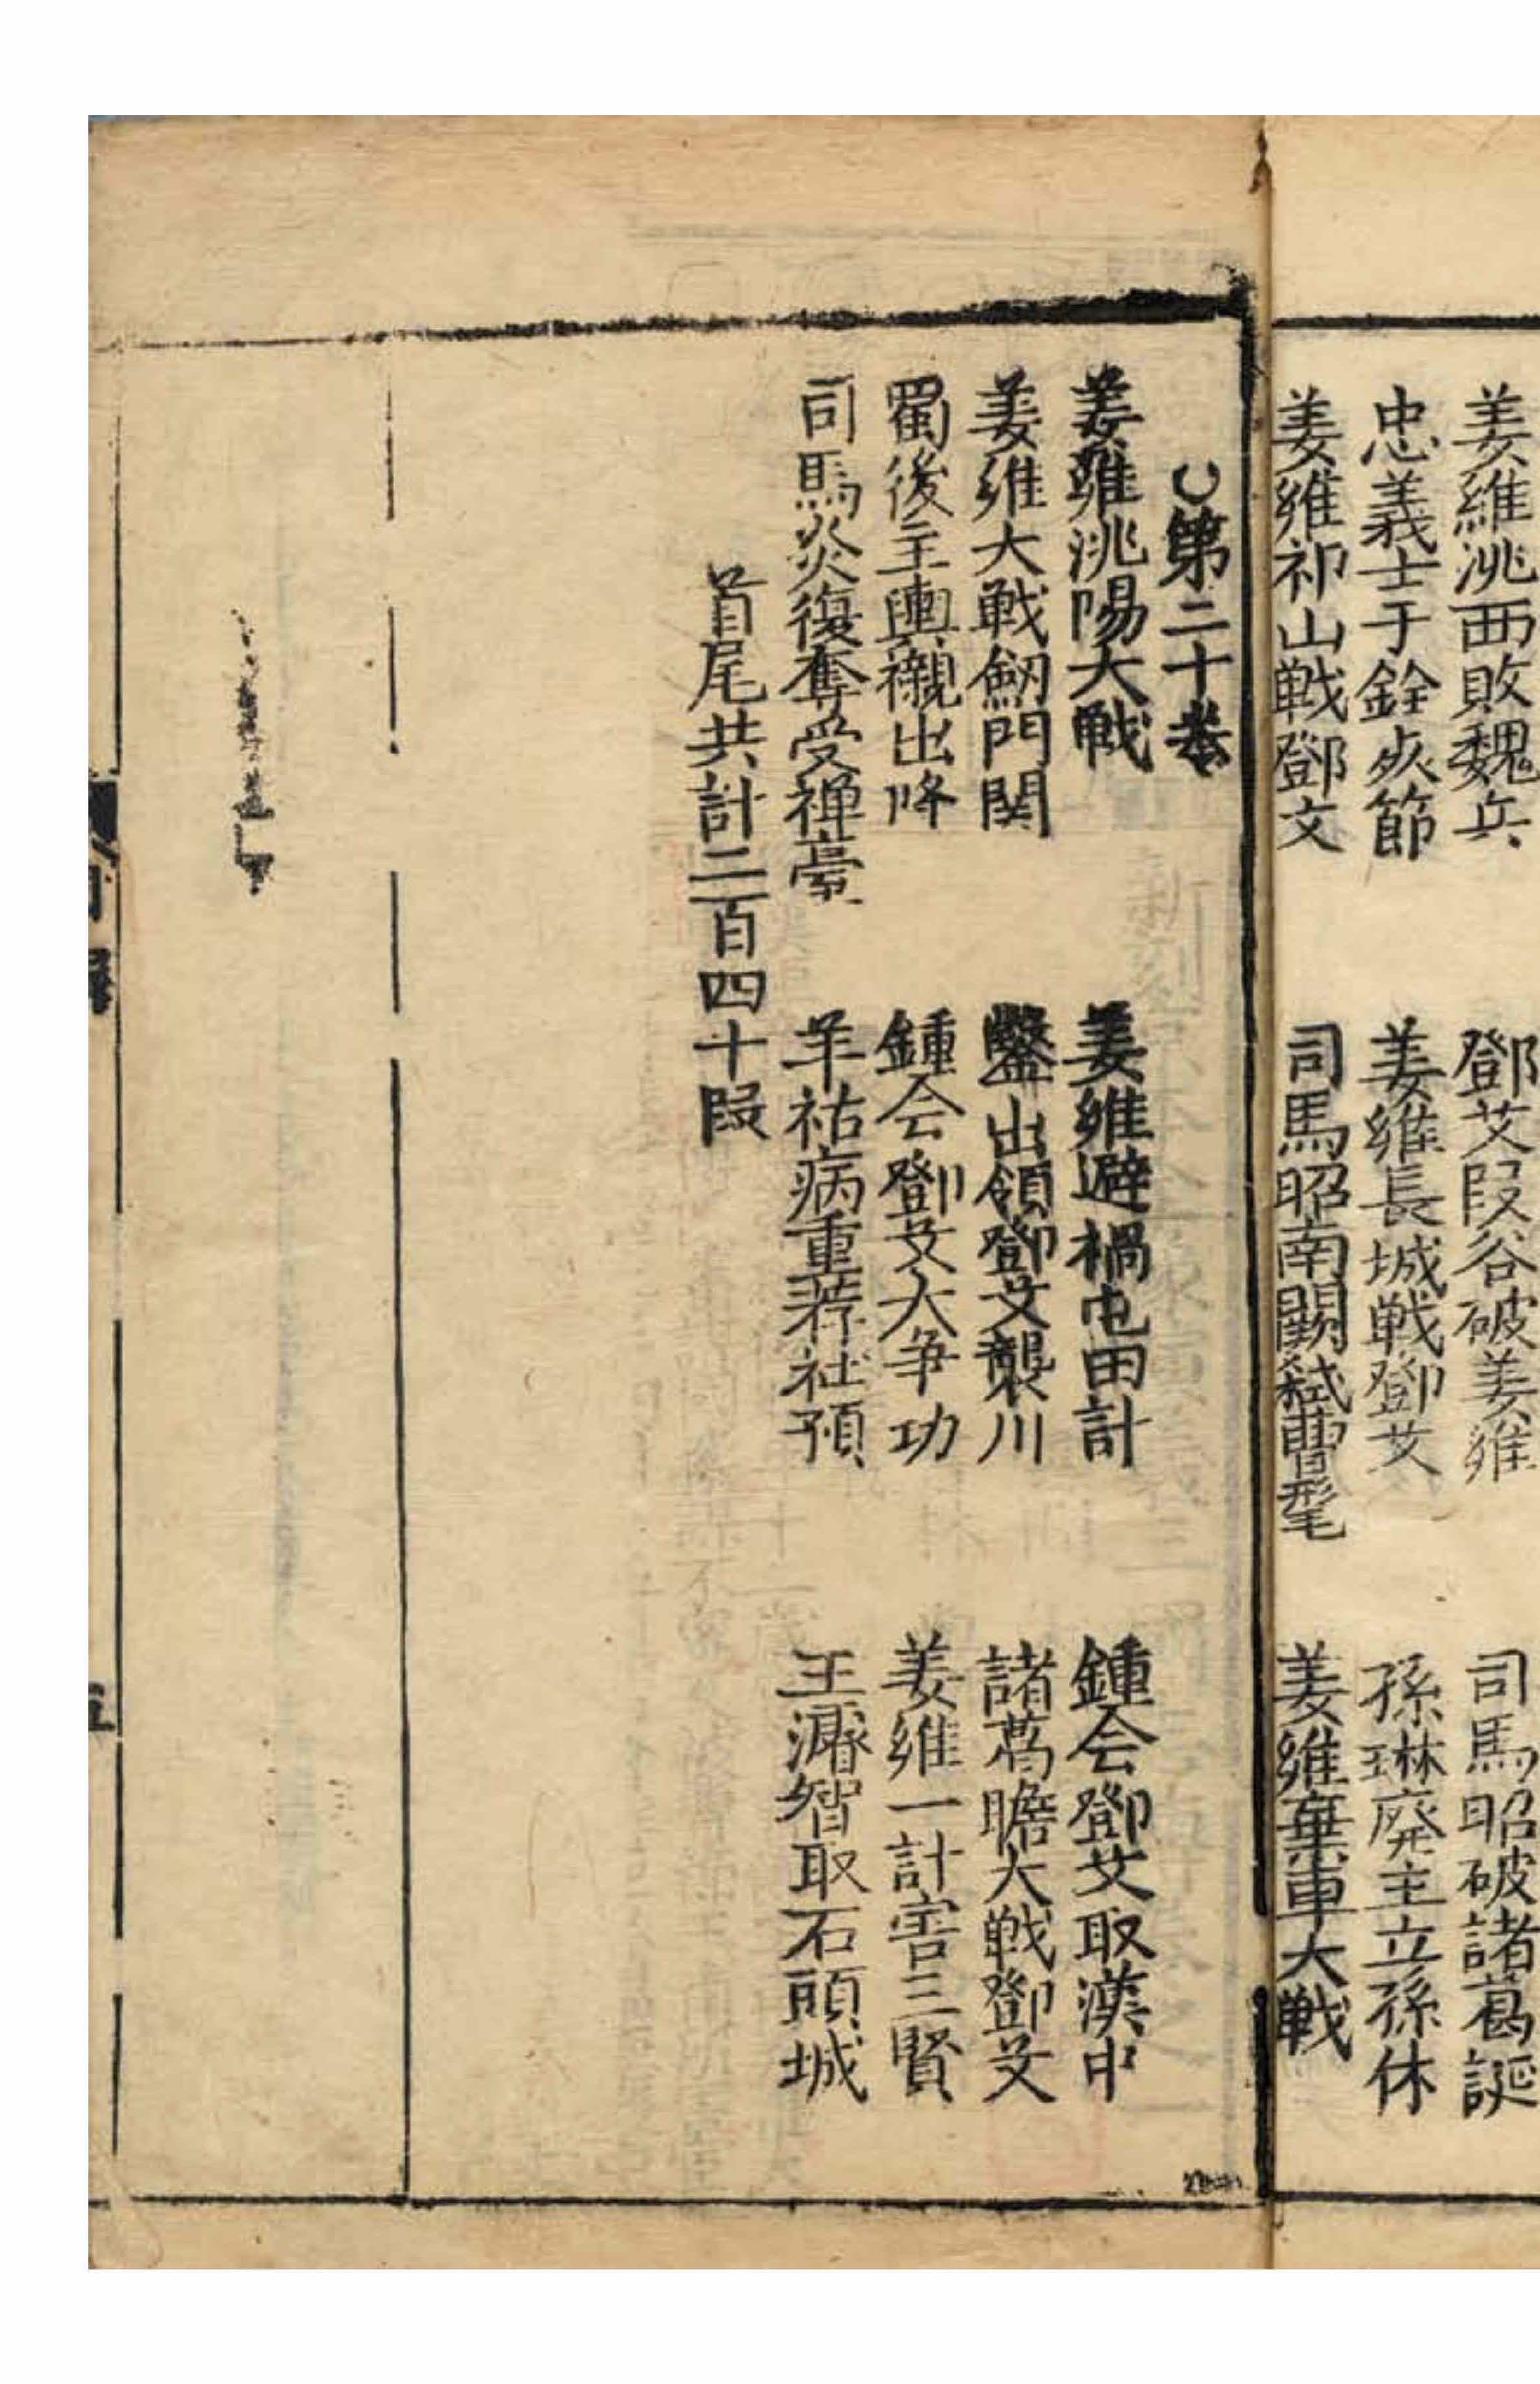 姜維洮西敗魏兵　鄧艾叚谷破姜維　司馬昭破諸葛誕
忠義士于銓死節　姜維長城戦鄧艾　孫琳廢主立孫休
姜維祁山戦鄧艾　司馬昭南闕弑曹髦　姜維棄車大戦
第二十卷
姜維洮陽大戦　姜維避禍屯田計　鍾会鄧艾取漢中
姜維大戦劔門関　鑿山嶺鄧艾襲川　諸葛瞻大戦鄧艾
蜀後主輿櫬出降　鍾会鄧艾大争功　姜維一計害三賢
司馬炎復奪受禅臺　羊祜病重荐杜預　王濬智取石頭城
首尾共計二百四十叚
五